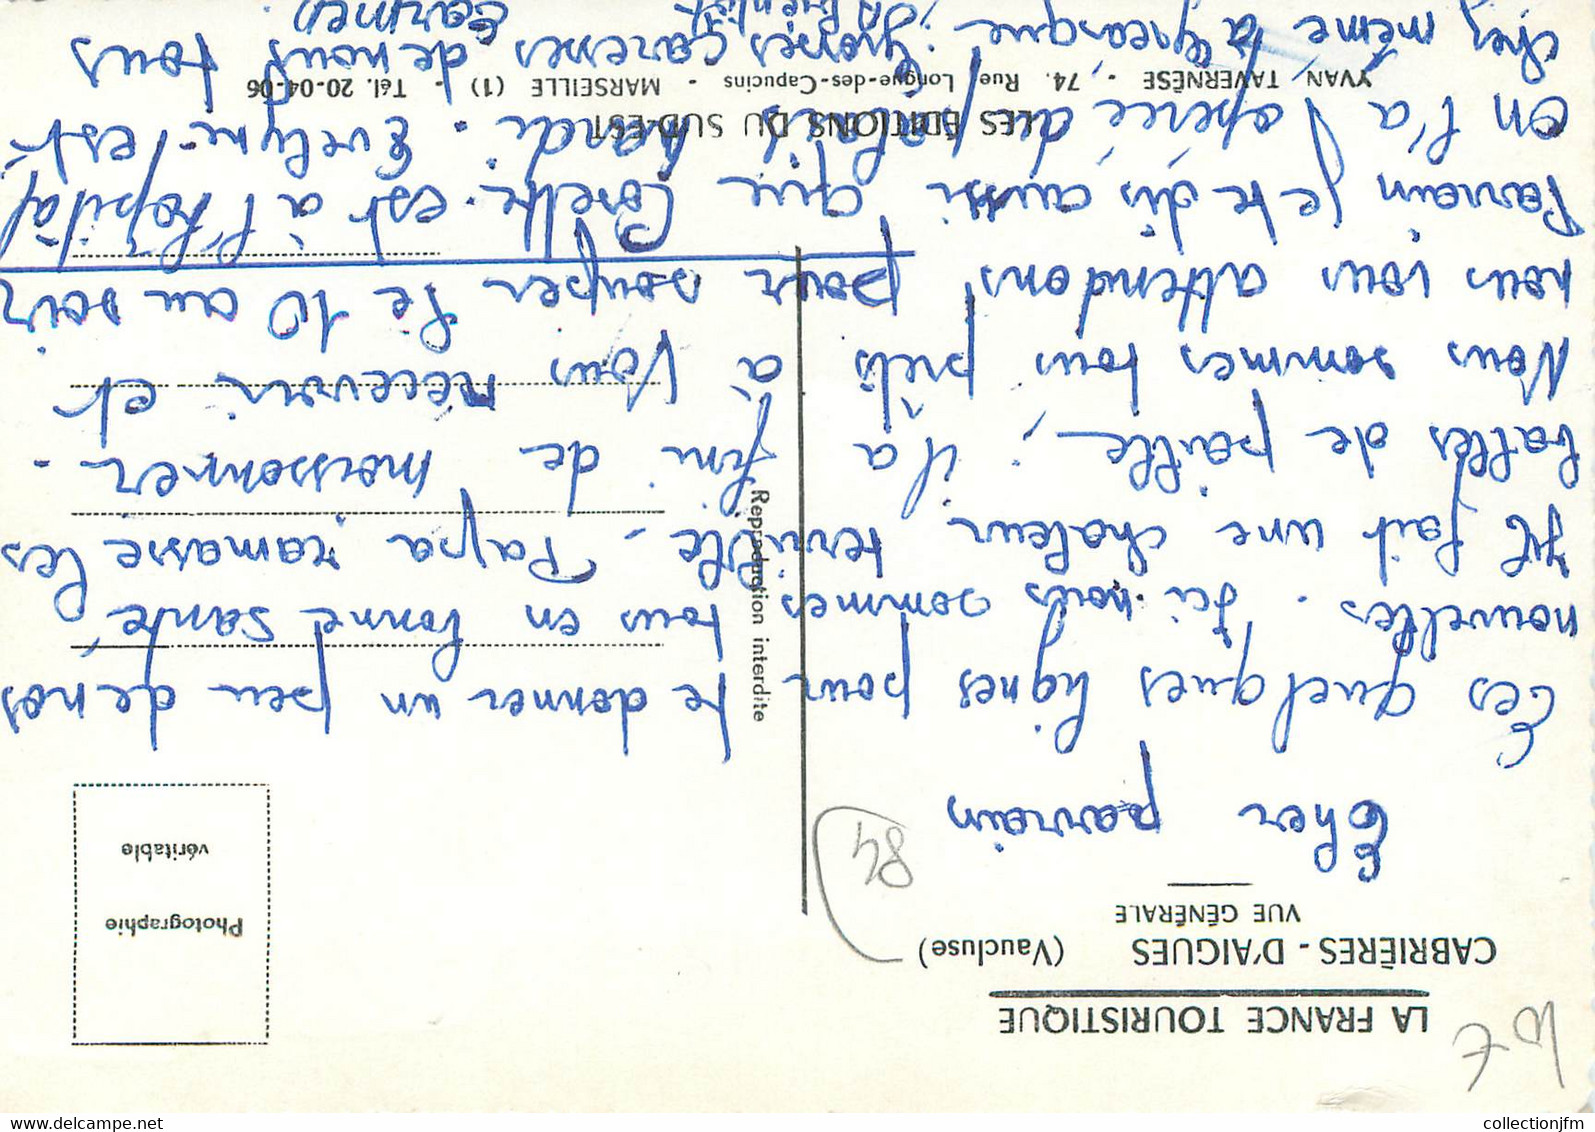 LA FRANCE TOURISTIQUE
CABRIÈRES - D'AIGUES (Vaucluse)
VUE GÉNÉRALE
84
Photographie
véritable
Cher parrain
Ces quelques lignes pour te donner un peu de nos
nouvelles. Ici nous sommes tous en bonne santé
Il fait une chaleur terrible. Papa ramasse les
balles de paille, il a fini de moissonner.
Nous sommes tous prêts à vous recevoir et
nous vous attendons pour souper le 10 au soir
Parrain je te dis aussi que Cosette est à l'hopital
on l'a opérée du palais mardi. Evelyne est
chez mémé à Gréasque. Grosses caresses de nous tous
Reproduction interdite
LES ÉDITIONS DU SUD-EST
YVAN TAVERNÈSE - 74, Rue Longue-des-Capucins - MARSEILLE (1) - Tél. 20-04-06
collectionjfm